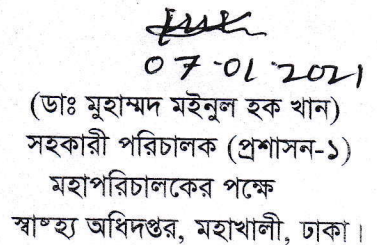 07-01-2021
(ডাঃ মুহাম্মদ মইনুল হক খান)
সহকারী পরিচালক (প্রশাসন-১)
মহাপরিচালকের পক্ষে
স্বাস্হ্য অধিদপ্তর, মহাখালী, ঢাকা।